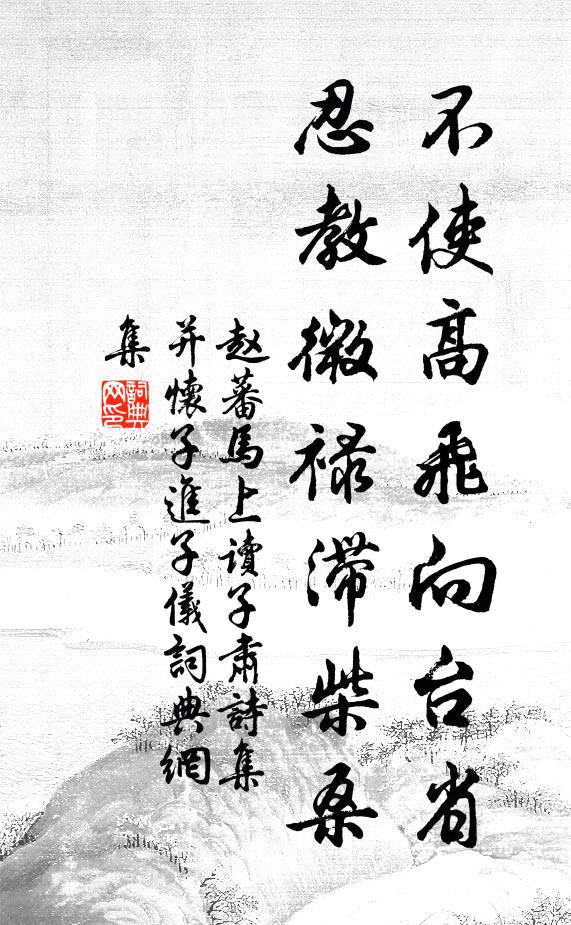 不使高飛向台省
忍教微禄滯柴桑
赵蕃馬上讀子肅詩集
并懷子進子儀詞典網
集
詞典
网印